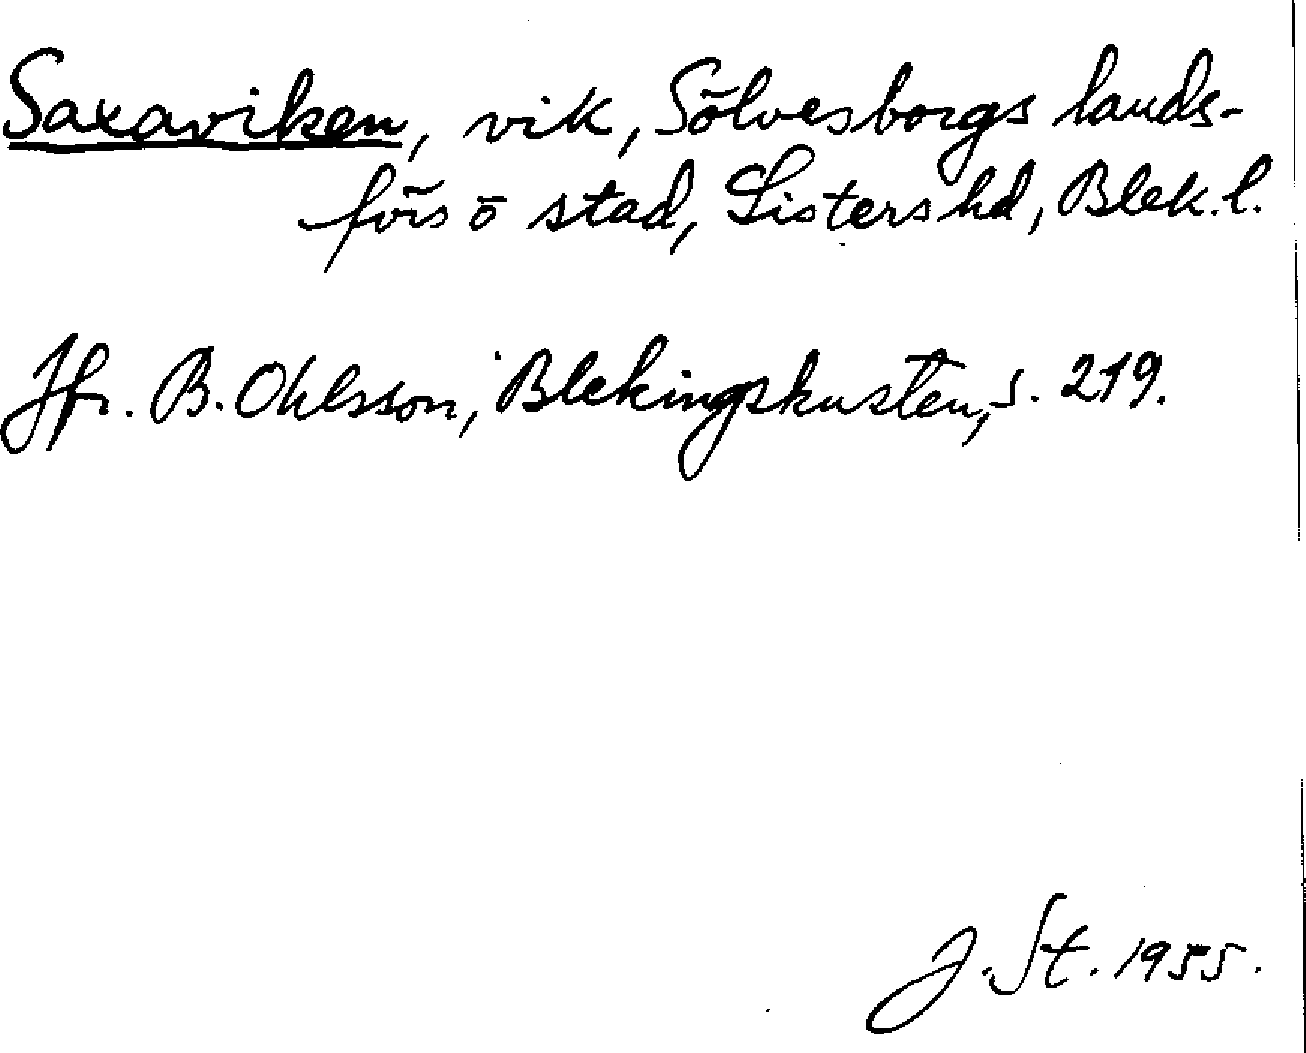 Saxaviken, vik, Sölvesborgs lands-
förs o stad, Listers hd, Blek. l.
Jfr. B. Ohlsson, Blekingskusten, s. 219.
J. St. 1955.